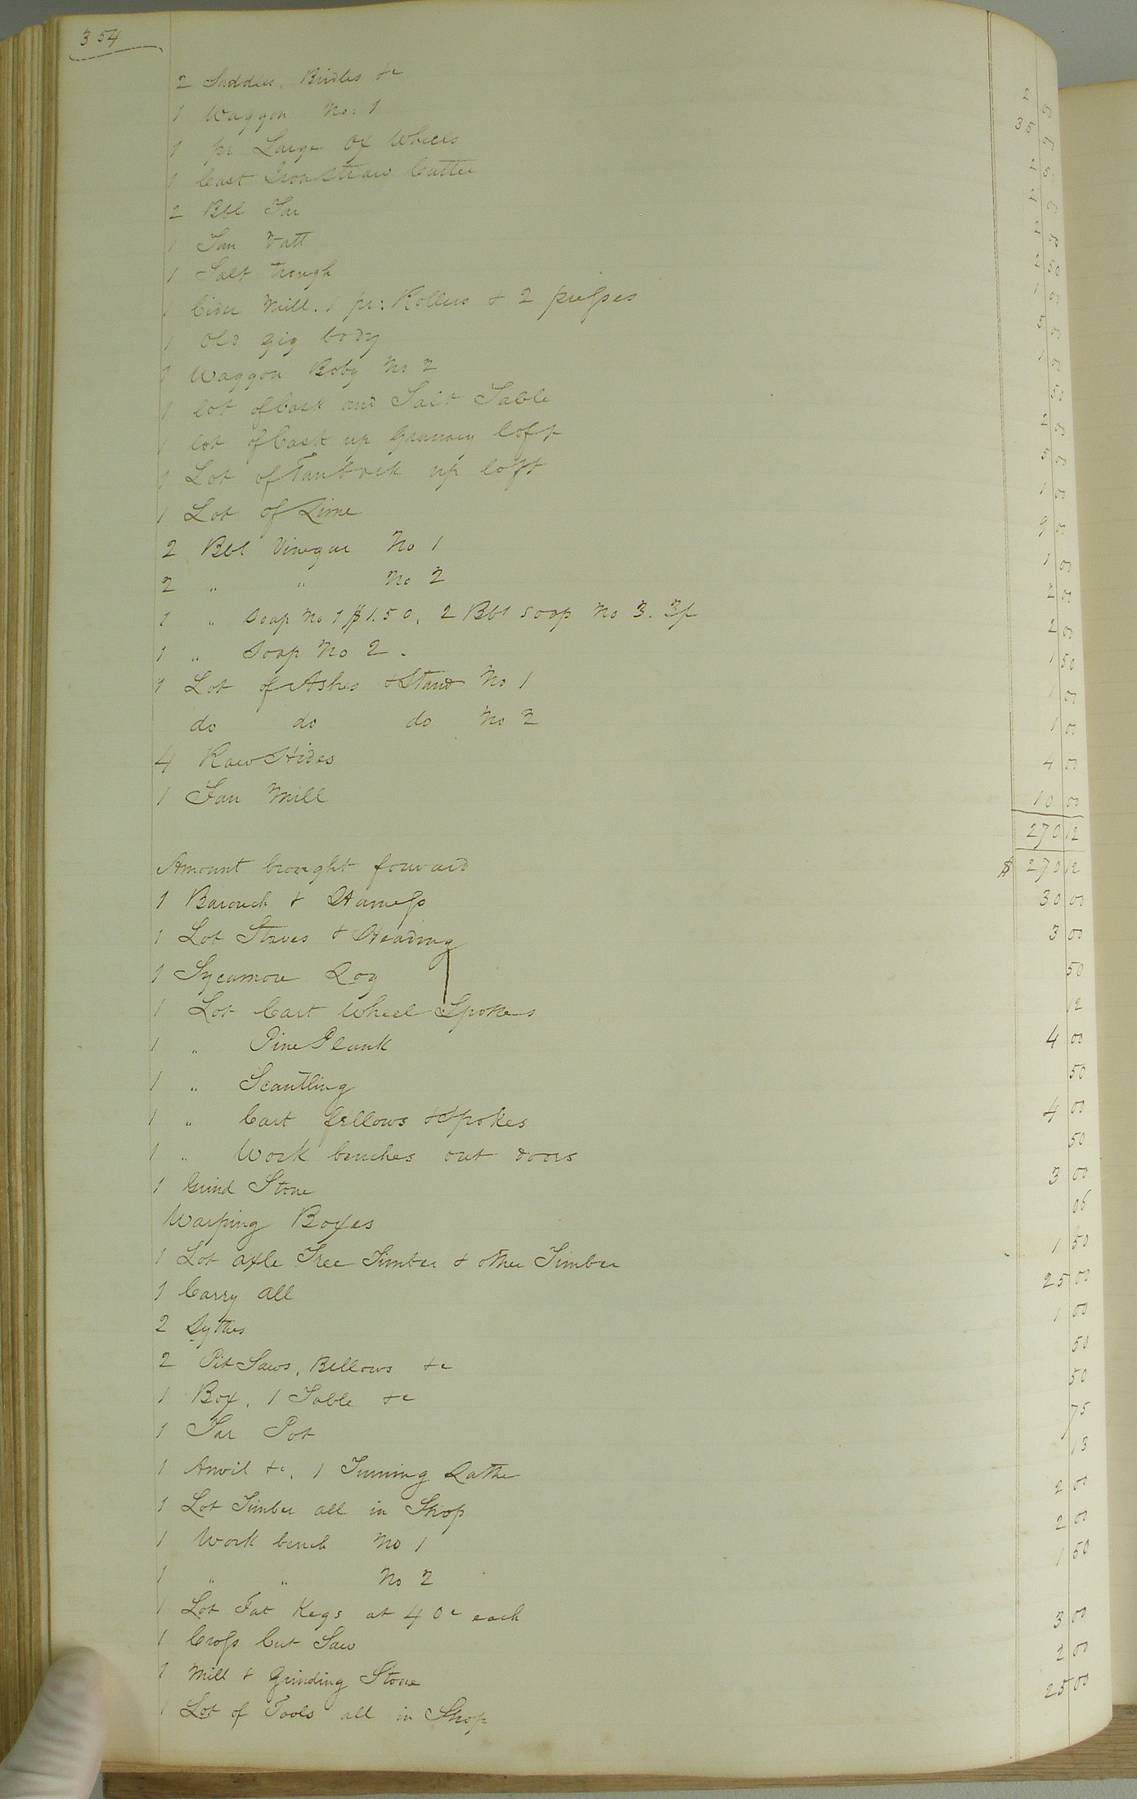 354
2 Saddles, Bridles &c 2
1 Waggon No. 1 35
1 pr Large Ox Wheels
1 Cast Iron Straw Cutter
2 Bbl Tar
1 Tan Vatt
1 Salt trough
1 Cider Mill. 1 pr: Rollers & 2 presses
1 Old gig body
1 Waggon Boby No 2
1 lot of Cask and Salt Table
1 lot of Cask up Granary loft
1 Lot of Tanbark up loft
1 Lot of Lime
2 Bbl Vinegar No 1
2 " " No 2
1 " Soap No 1 $1.50, 2 Bbl soap No 3.
1 " Soap No 2.
1 Lot of Ashes & Stand No 1
do do do No 2 1 00
4 Raw Hides 4 00
1 Fan Mill 10 00
270 12
Amount brought forward $ 270 12
1 Barouch & Harness 30 00
1 Lot Staves & Heading 3 00
1 Sycamore Log 50
1 Lot Cart Wheel Spokes 12
1 " Pine Plank 4 00
1 " Scantling 50
1 " Cart fellows & Spokes 4 00
1 " Work benches out doors 50
1 Grind Stone 3 00
Warping Boxes 06
1 Lot axle Tree Timber & other Timber 1 50
1 Carry all 25 00
2 Sythes 1 00
2 Pit Saws, Bellows &c 50
1 Box, 1 Table &c 50
1 Tar Pot 75
1 Anvil &c, 1 Turning Lathe 13
1 Lot Timber all in Shop 2 00
1 Work bench No 1 2 00
1 " " No 2 1 50
1 Lot Fat Kegs at 40c each
1 Cross Cut Saw 3 00
1 Mill & Grinding Stone 2 00
1 Lot of Tools all in Shop 25 00